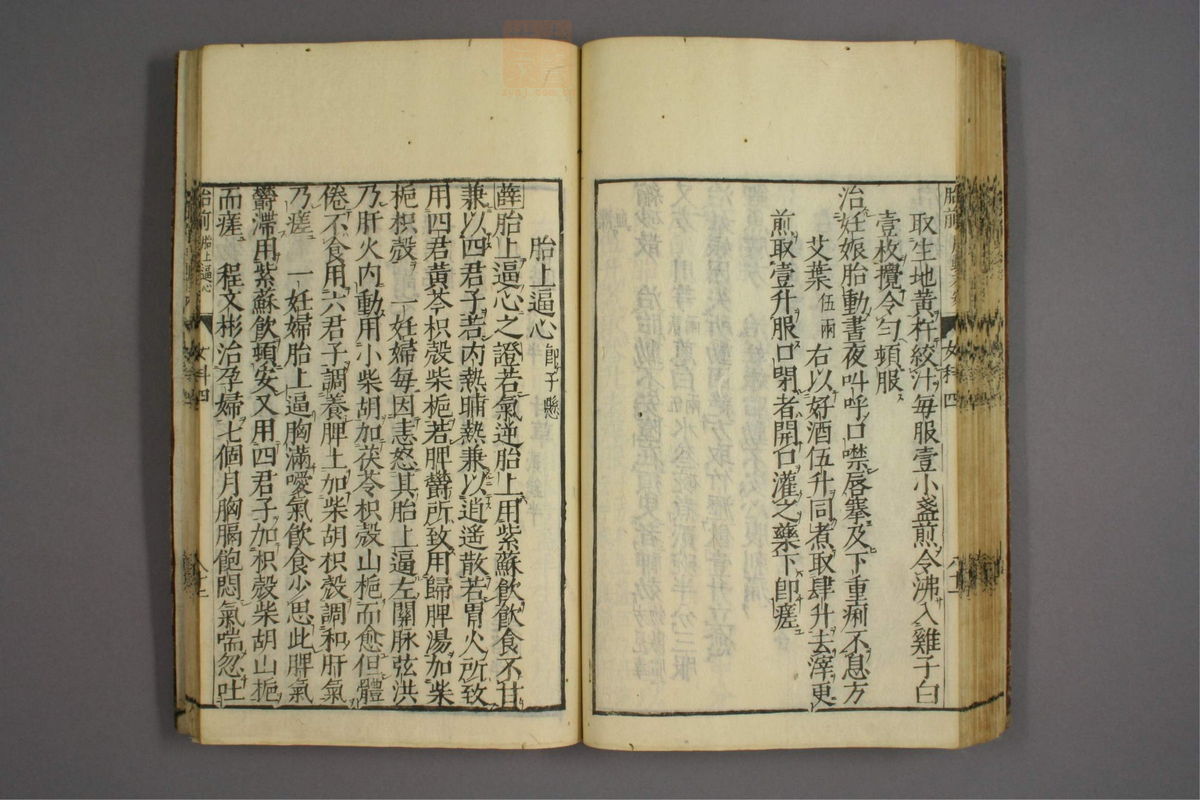 取生地黃杵絞汁每服壹小盞煎令沸入雞子白
壹枚攪令勻頓服
治妊娠胎動晝夜叫呼口噤唇搴及下重痢不息方
艾葉伍兩 右以好酒伍升同煮取肆升去滓更
煎取壹升服口閉者開口灌之藥下卽瘥
胎上逼心卽子懸
薛胎上逼心之證若氣逆胎上用紫蘇飲飲食不甘
兼以四君子若內熱晡熱兼以逍遙散若胃火所致
用四君黃芩枳殼柴梔若脾鬱所致用歸脾湯加柴
梔枳殼 一妊婦每因恚怒其胎上逼左關脉弦洪
乃肝火內動用小柴胡加茯苓枳殼山梔而愈但體
倦不食用六君子調養脾土加柴胡枳殼調和肝氣
乃瘥 一妊婦胎上逼胸滿噯氣飲食少思此脾氣
鬱滯用紫蘇飲頓安又用四君子加枳殼柴胡山梔
而瘥 程文彬治孕婦七個月胸膈飽悶氣喘忽吐
胎前 胎上逼心
女科四